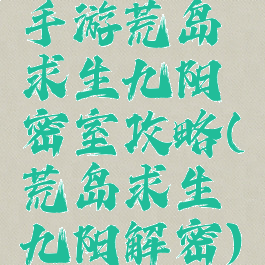 手游荒岛
求生九阳
密室攻略(
荒岛求生
九阳解密)